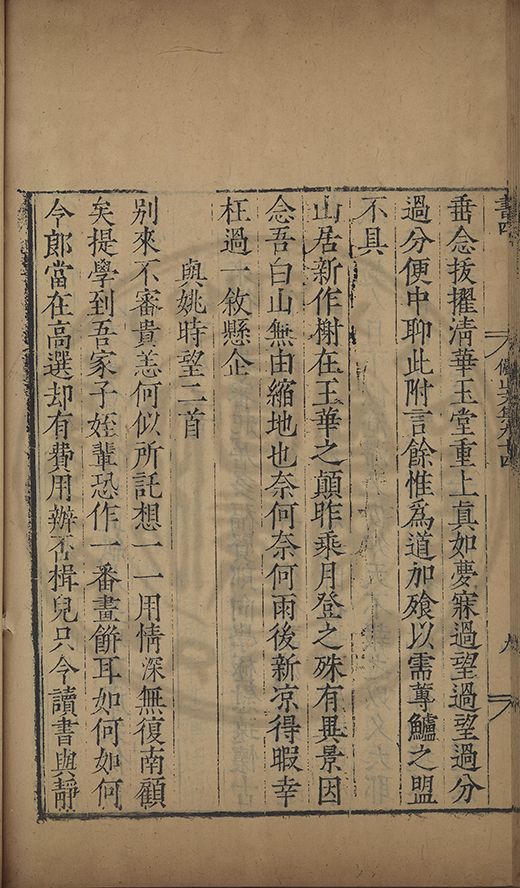 書四
垂念拔擢淸華玉堂重上真如夢寐過望過望過分
過分便中聊此附言餘惟爲道加飱以需蓴鱸之盟
不具
山居新作榭在玉華之顛昨乘月登之殊有異景因
念吾白山無由縮地也奈何奈何雨後新凉得暇幸
枉過一敘懸企
與姚時望二首
別來不審貴恙何似所託想一一用情深無復南顧
矣提學到吾家子姪輩恐作一番畫餅耳如何如何
令郎當在高選却有費用辦否楫兒只今讀書與靜